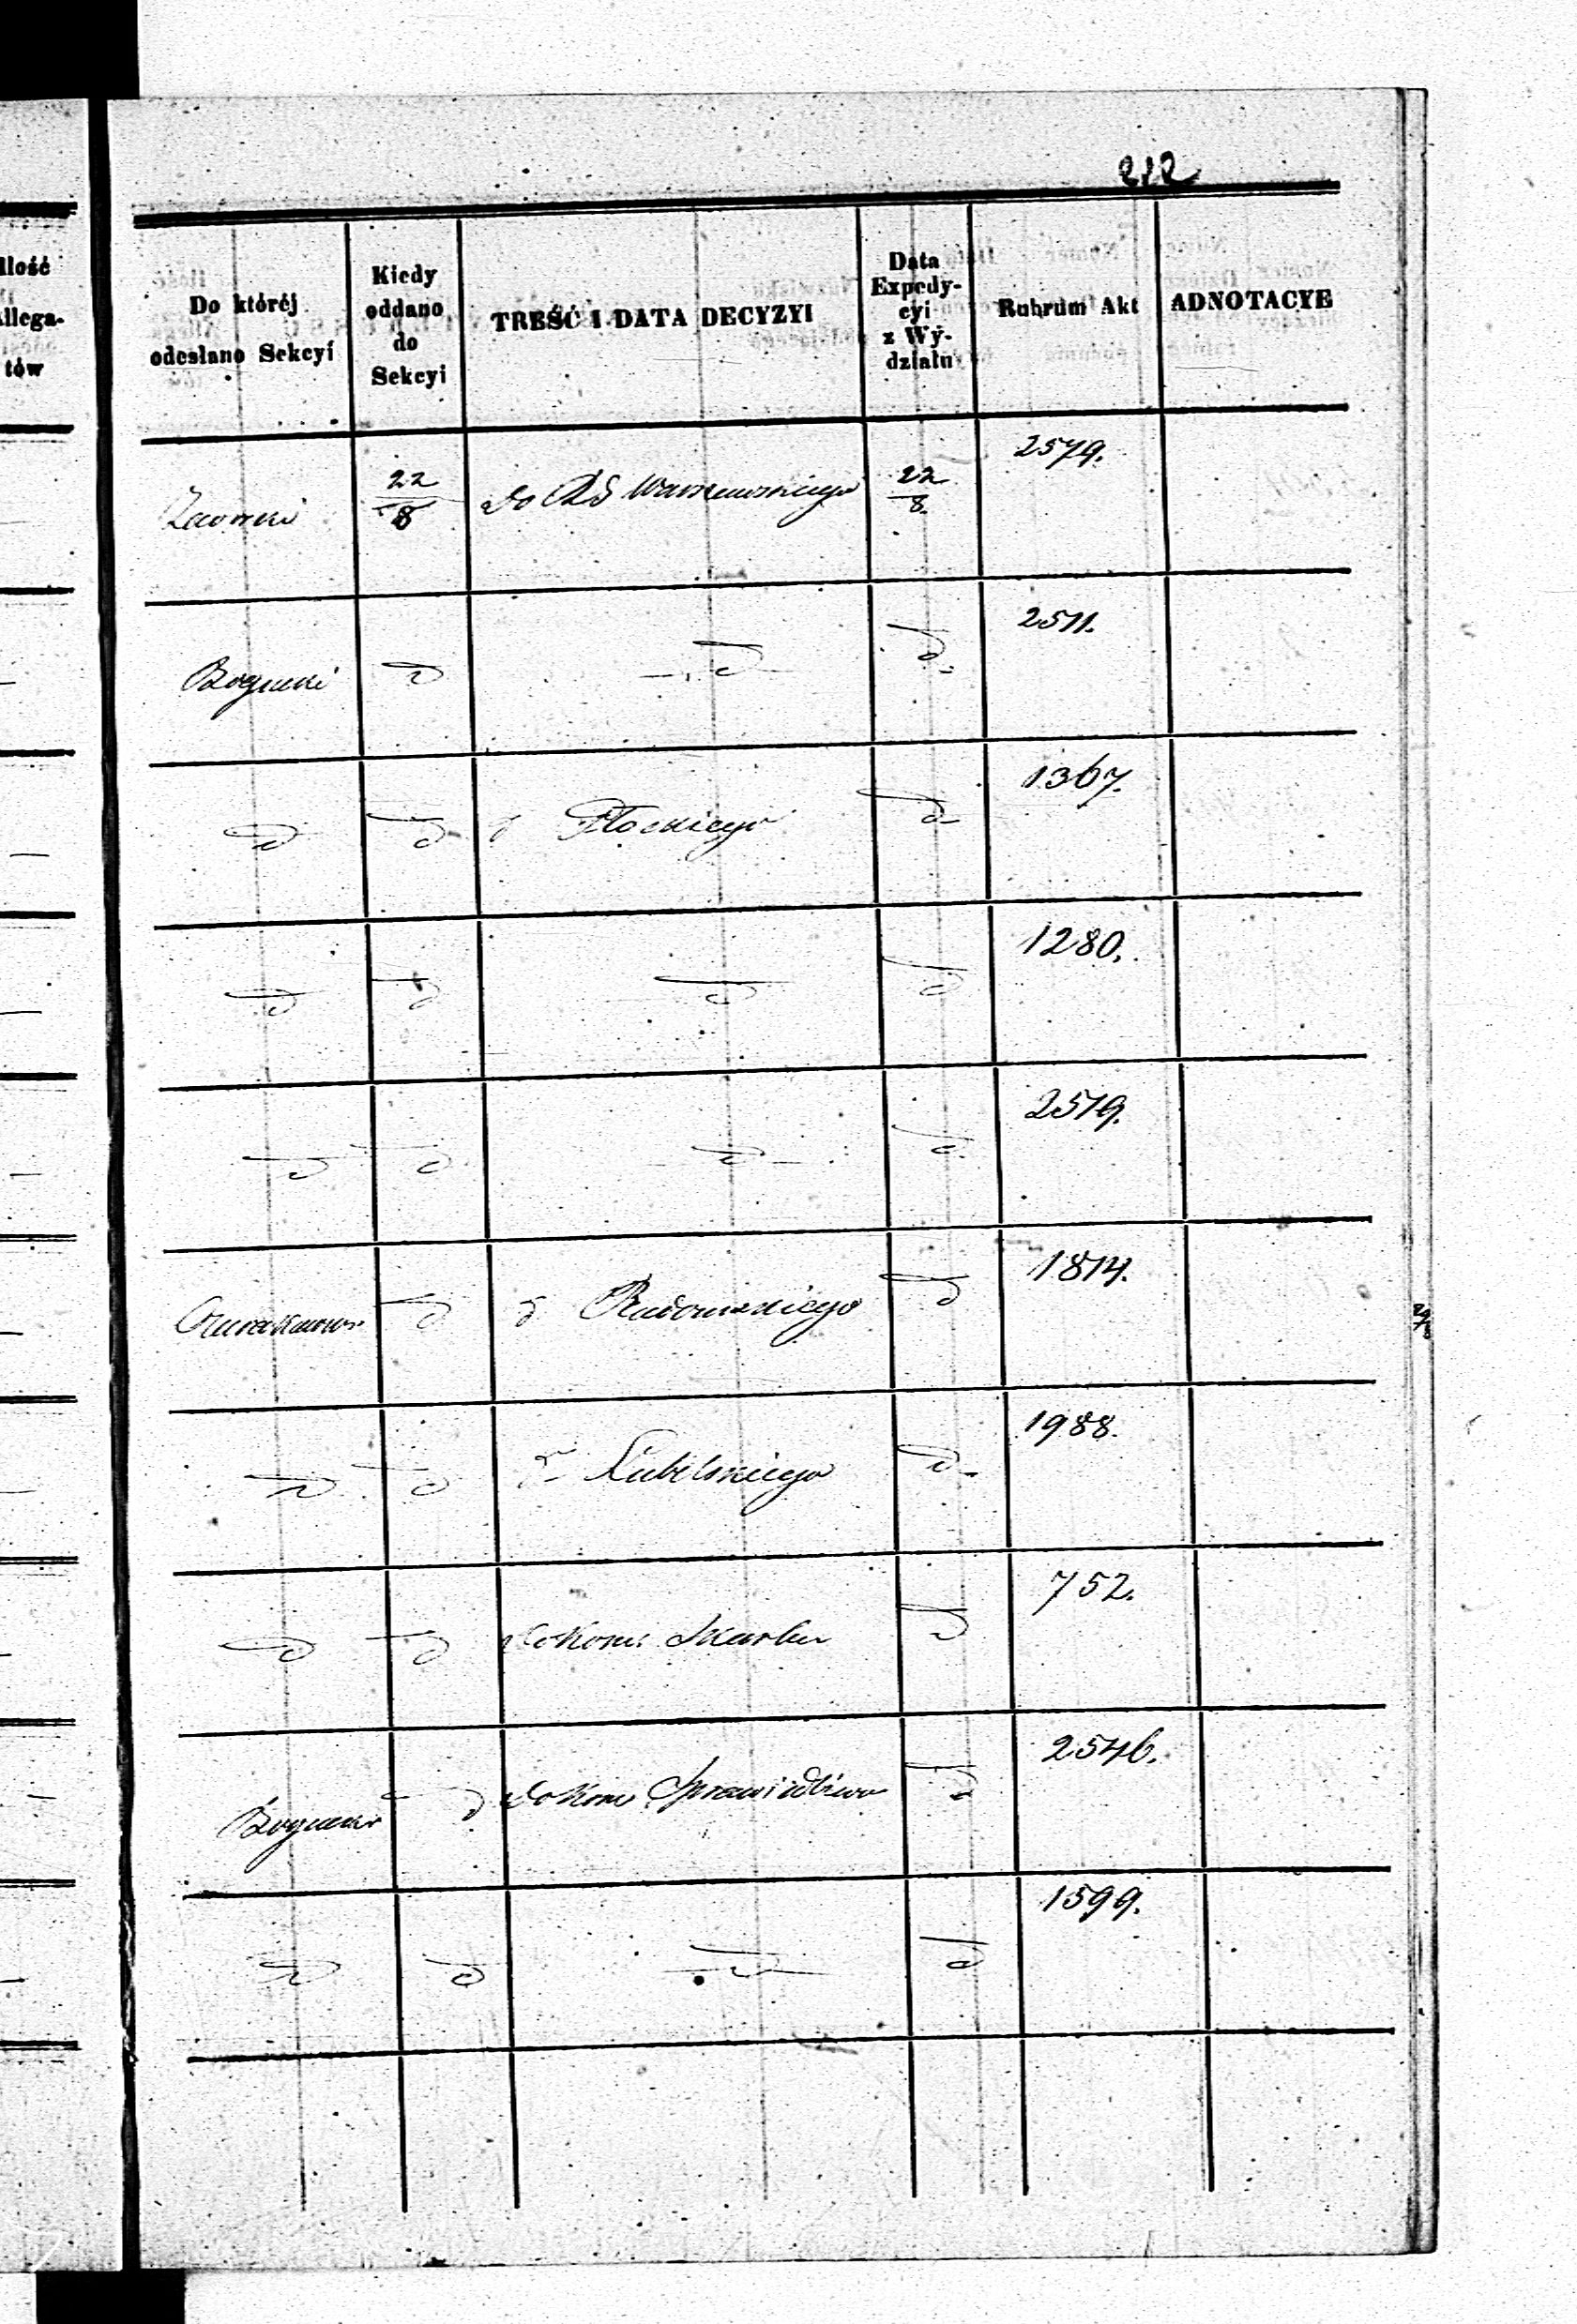 212
Ilość
Allega-
tów
Do któréj
odesłano Sekcyi
Kiedy
oddano
do
Sekcyi
TREŚĆ I DATA DECYZYI
Data
Expedy-
cyi
z Wy-
działu
Rubrum Akt
ADNOTACYE
22/8 do RG Warszawskiego 22/8 2579.
Bogucki d d d 2511.
d d d Płockiego d 1367.
d d d d 1280.
d d d d 2519.
d d Radomskiego d 1814.
d d d Lubelskiego d 1988.
d d do Kom: Skarbu d 752.
Bogucki d do Kom Sprawiedliwo d 2546.
d d d d 1599.